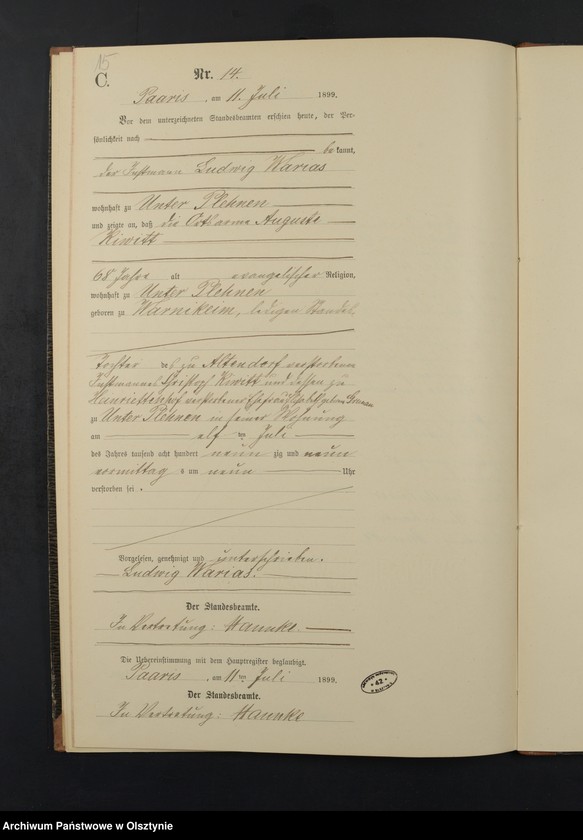 15
C.
Nr. 14.
Paaris, am 11. Juli 1899.
Vor dem unterzeichneten Standesbeamten erschien heute, der Per-
sönlichkeit nach
bekannt,
der Instmann Ludwig Warias
wohnhaft zu Unter Plehnen
und zeigte an, daß die Ortsarme Auguste
Kiwitt
68 Jahre alt evangelischer Religion,
wohnhaft zu Unter Plehnen
geboren zu Warnikeim, ledigen Standes,
Tochter des zu Altendorf verstorbenen
Instmannes Christoph Kiwitt und dessen zu
Henriettenhof verstorbener Ehefrau geborene
zu Unter Plehnen in seiner Wohnung
am elf ten Juli
des Jahres tausend acht hundert neun zig und neun
vormittags um neun Uhr
verstorben sei.
Vorgelesen, genehmigt und unterschrieben.
Ludwig Warias.
Der Standesbeamte.
In Vertretung: Hannke.
Die Uebereinstimmung mit dem Hauptregister beglaubigt.
Paaris, am 11ten Juli 1899.
Der Standesbeamte.
In Vertretung: Hannke
* 42 *
Archiwum Państwowe w Olsztynie